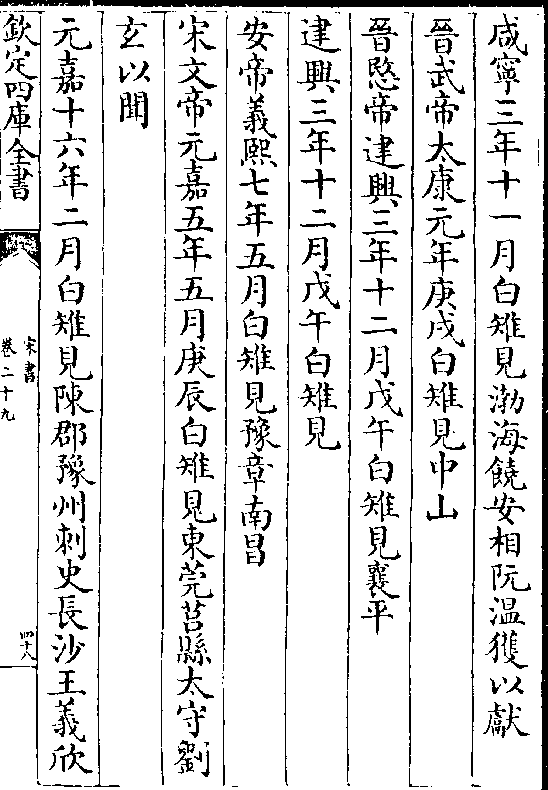 咸寧三年十一月白雉見渤海饒安相阮温獲以獻
晉武帝太康元年庚戌白雉見中山
晉愍帝建興三年十二月戊午白雉見襄平
建興三年十二月戊午白雉見
安帝義熙七年五月白雉見豫章南昌
宋文帝元嘉五年五月庚辰白雉見東莞莒縣太守劉
玄以聞
元嘉十六年二月白雉見陳郡豫州刺史長沙王義欣
欽定四庫全書
宋書
卷二十九
四十八